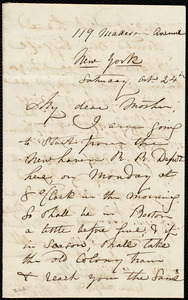 119 Madison Avenue
New York
Saturday Oct 24th
My dear Mother,
I am going
to start from the
New haven R. R. Depot
here, on Monday at
8 o'Clock in the morning
& shall be in Boston
a little before five, & if
in season, shall take
the old Colony train
& reach you the same